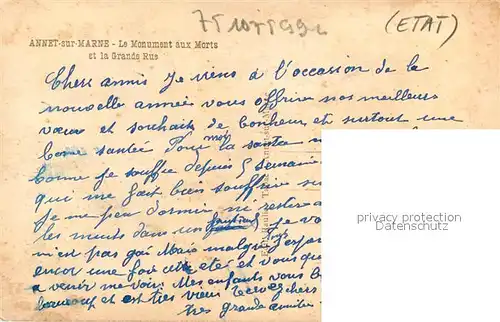 (ETAT)
ANNET-sur-MARNE - Le Monument aux Morts
et la Grande Rue
Chers amis Je viens à l'occasion de la
nouvelle année vous offrir nos meilleurs
vœux et souhaits de bonheur et surtout une
bonne santée Pour moi la santé
bonne je souffre depuis 5 semaine
qui me fait bien souffrir
Je ne peu dormir
les nuits dans un fauteuil Je
n'est pas gai Mais malgré
encor une fois cette été et vous que
a venir me voir. Mes enfants vous
beaucoup et est très vieux Recevez chers
très grande amitiés
privacy protection
Datenschutz